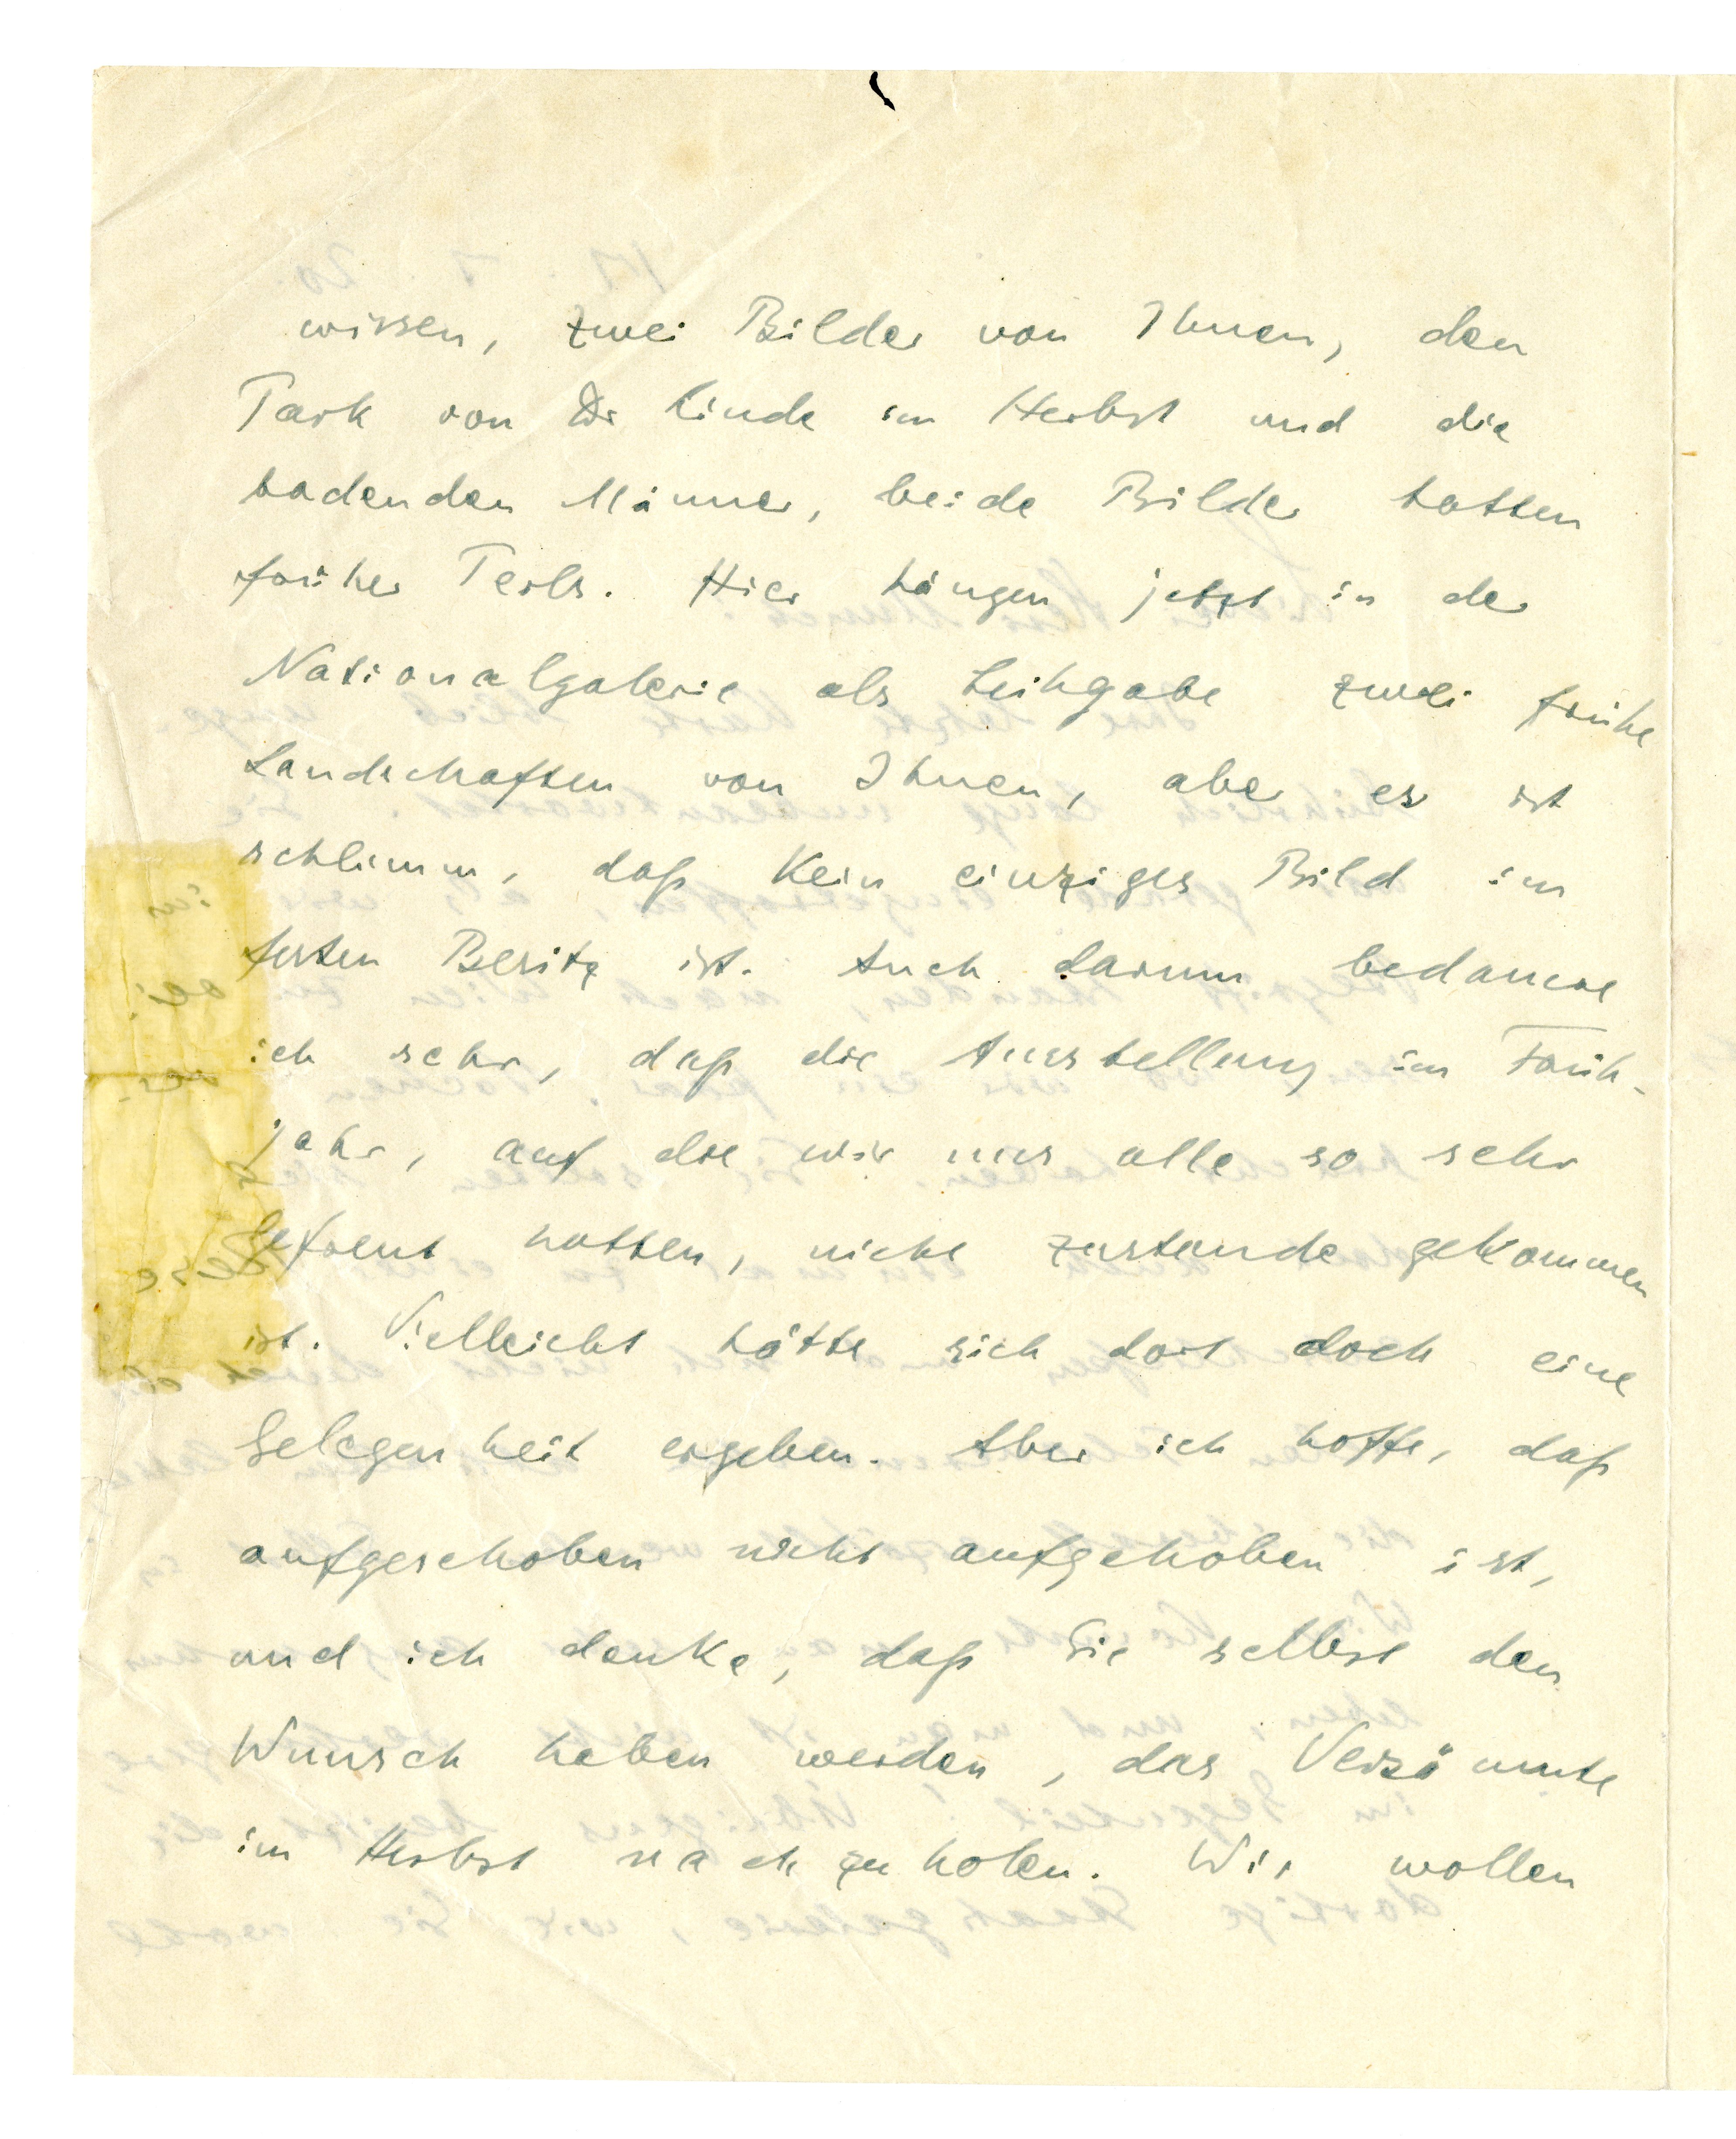 wissen, zwei Bilder von Ihnen, den
Park von Dr Linde im Herbst und die
badenden Männer, beide Bilder hatten
früher Perls. Hier hängen jetzt in der
Nationalgalerie als Leihgabe zwei frühe
Landschaften von Ihnen, aber es ist
schlimm, daß kein einziges Bild im
festen Besitz ist. Auch darum bedauere
ich sehr, daß die Ausstellung im Früh-
jahr, auf die wir uns alle so sehr
gefreut hatten, nicht zustande gekommen
ist. Vielleicht hätte sich dort doch eine
Gelegenheit ergeben. Aber ich hoffe, daß
aufgeschoben nicht aufgehoben ist,
und ich denke, daß Sie selbst den
Wunsch haben werden, das Versäumte
im Herbst nachzuholen. Wir wollen